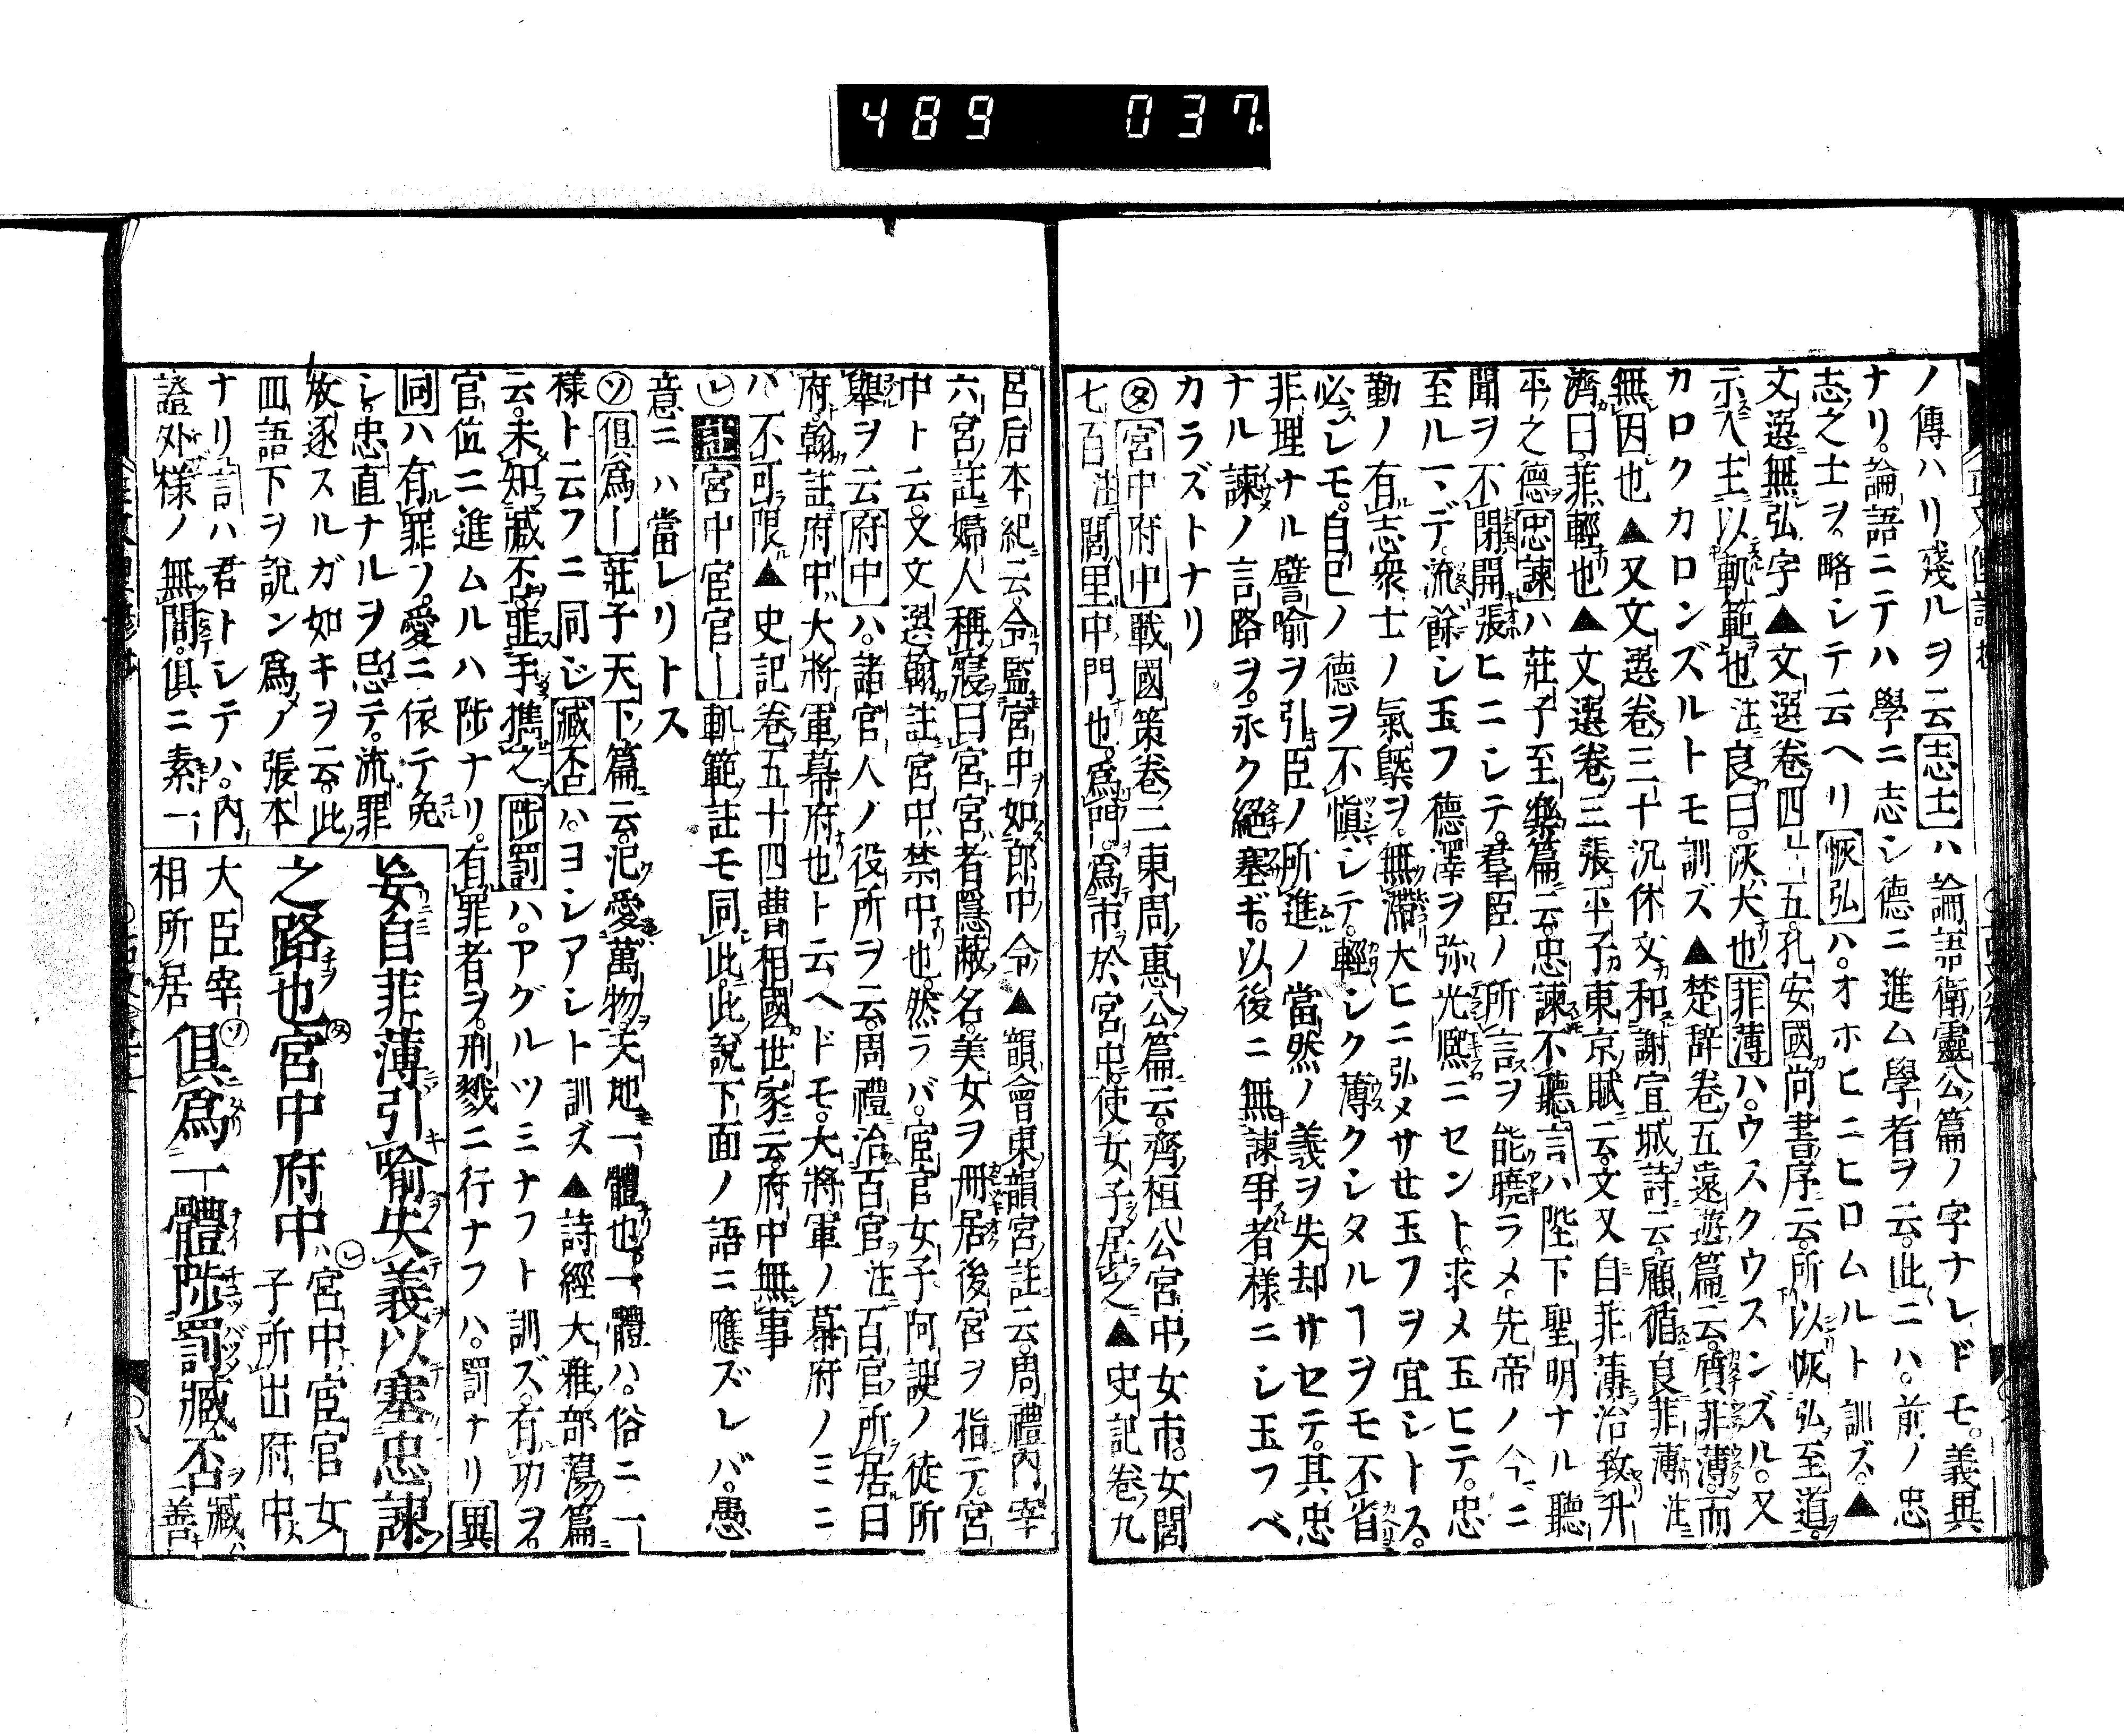 489 037
ノ傳ハリ殘ルヲ云志士ハ論語衛靈公篇ノ字ナレドモ。義異
ナリ。論語ニテハ學ニ志シ德ニ進ム學者ヲ云。此ニハ。前ノ忠
志之士ヲ。略シテ云ヘリ恢弘ハ。オホヒニヒロムルト訓ズ。▲
文選無弘字▲文選卷四十五。孔安國尚書序云。所以恢弘至道。
示人主以軌範也注良曰。恢大也菲薄ハ。ウスクウスンズル。又
カロクカロンズルトモ訓ズ▲楚辞卷五遠遊篇云。質菲薄。而
無因也▲又文選卷三十沉休文和謝宣城詩云。顧循良菲薄注
濟曰。菲輕也▲文選卷三張平子東京賦云。文又自菲薄治致升
平之德忠諫ハ莊子至樂篇云。忠諫不聽言ハ陛下聖明ナル聽
聞ヲ不閉開張ヒニシテ。羣臣ノ所言ヲ能曉ラメ。先帝ノ今ニ
至ルマデ。流餘シ玉フ德澤ヲ弥光凞ニセント。求メ玉ヒテ。忠
勤ノ有志衆士ノ氣槩ヲ。無滯大ヒニ弘メサセ玉フヲ宜シトス。
必シモ。自己ノ德ヲ不愼シテ。輕シク薄クシタルヿヲモ不省
非理ナル譬喻ヲ引臣ノ所進ノ當然ノ義ヲ失却サセテ。其忠
ナル諫ノ言路ヲ。永ク絕塞ギ。以後ニ無諫爭者樣ニシ玉フベ
カラズトナリ
タ宮中府中戰國策卷二東周惠公篇云。齊桓公宮中女市。女閭
七百注閭里中門也。爲門。爲市於宮中。使女子居之▲史記卷九
呂后本紀云。令監宮中如郎中令▲韻會東韻宮註云。周禮内宰
六宮註婦人稱寢曰宮宮者隱蔽名。美女ヲ冊居後宮ヲ指テ。宮
中ト云。文文選翰註宮中禁中也。然ラバ。宦官女子阿諛ノ徒所
舉ヲ云。府中ハ。諸官人ノ役所ヲ云。周禮治百官注百官所居曰
府翰註府中大將軍幕府也ト云ヘドモ。大將軍ノ幕府ノミニ
ハ不可限▲史記卷五十四曹相國世家云。府中無事
レ註宮中宦官ー軌範註モ同此。此說下面ノ語ニ應ズレバ。愚
意ニハ當レリトス
ソ俱爲ー莊子天下篇云。氾愛萬物天地一體也。一體ハ。俗ニ一
樣ト云フニ同ジ臧否ハ。ヨシアシト訓ズ▲詩經大雅部蕩篇
云。未知臧否。匪手攜之陟罰ハ。アグルツミナフト訓ズ。有功ヲ。
官位ニ進ムルハ陟ナリ。有罪者ヲ。刑戮ニ行ナフハ。罰ナリ異
同ハ有罪ノ。愛ニ依テ免
シ。忠直ナルヲ忌テ。流罪
放逐スルガ如キヲ云。此
四語下ヲ說ン爲ノ張本
ナリ言ハ君トシテハ。内
證外樣ノ無間。俱ニ素一
妄自菲薄引喻失義以塞忠諫
之路也タ宮中府中レ宮中宦官女
子所出府中
大臣宰
相所居ソ俱爲一體陟罰臧否臧
善